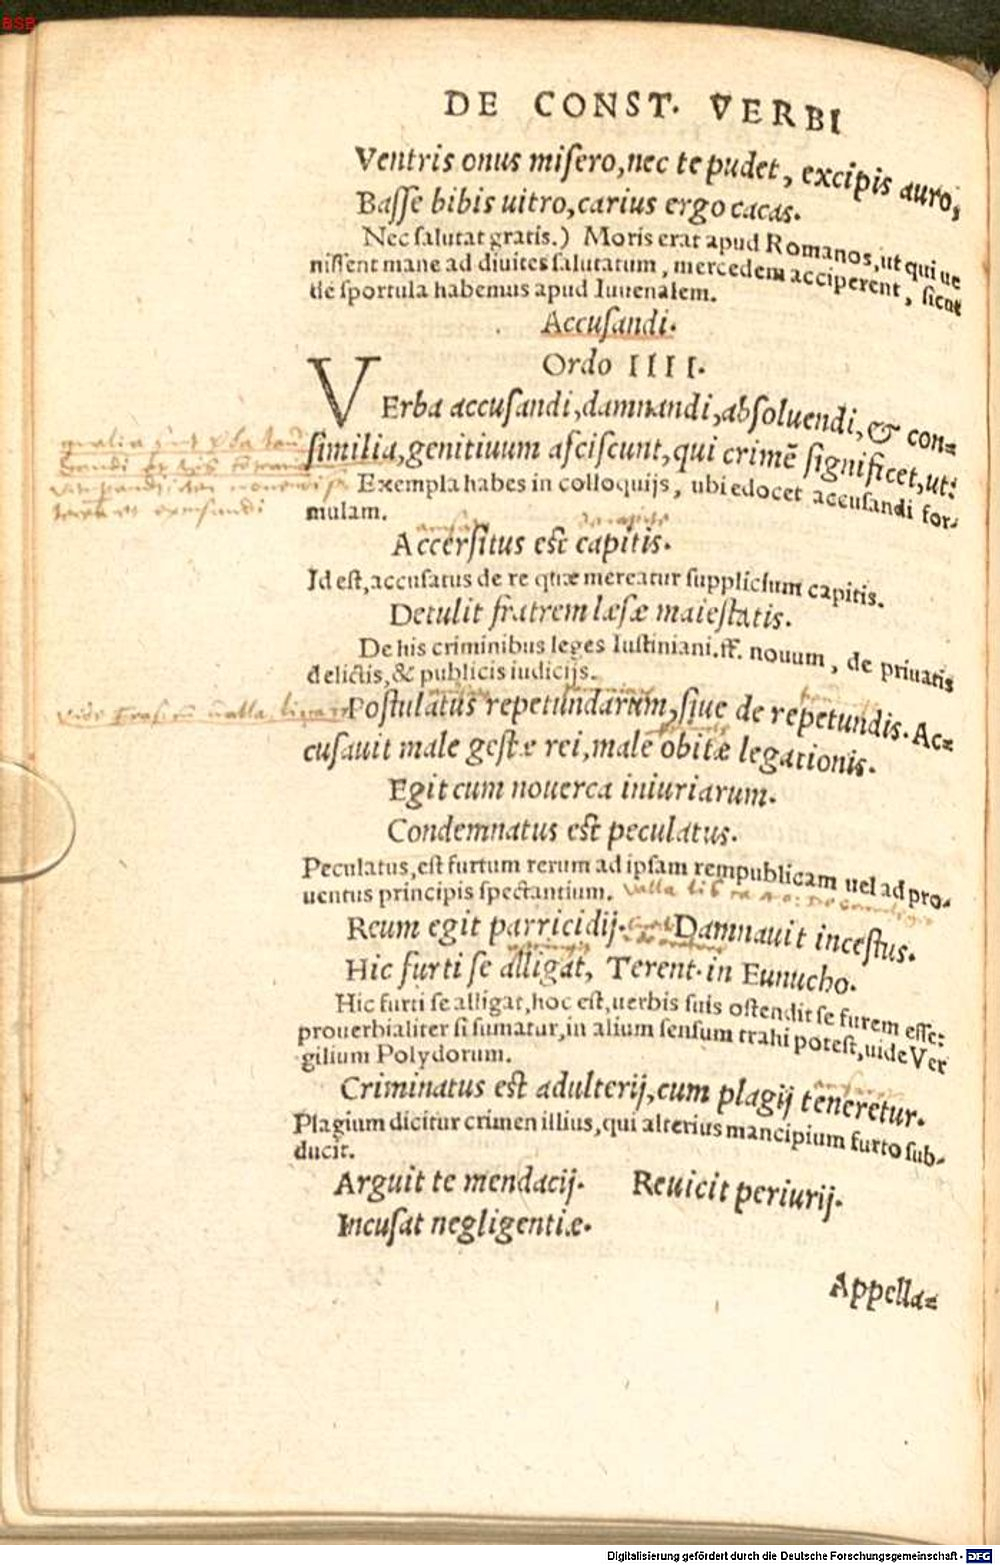 BSB
DE CONST. VERBI
Ventris onus miſero, nec te pudet, excipis auro,
Baſſe bibis uitro, carius ergo cacas.
Nec ſalutat gratis.) Moris erat apud Romanos, ut qui ue
niſſent mane ad diuites ſalutatum, mercedem acciperent, ſicut
de ſportula habemus apud Iuuenalem.
Accuſandi.
Ordo IIII.
VErba accuſandi, damnandi, abſoluendi, & con=
ſimilia, genitiuum aſciſcunt, qui crimē ſignificet, ut:
Exempla habes in colloquijs, ubi edocet accuſandi for-
mulam.
Accerſitus eſt capitis.
Id eſt, accuſatus de re quæ mereatur ſupplicium capitis.
Detulit fratrem læſæ maieſtatis.
De his criminibus leges Iuſtiniani. ff. nouum, de priuatis
delictis, & publicis iudicijs.
Poſtulatus repetundarum, ſiue de repetundis. Ac=
cuſauit male geſtæ rei, male obitæ legationis.
Egit cum nouerca iniuriarum.
Condemnatus eſt peculatus.
Peculatus, eſt furtum rerum ad ipſam rempublicam uel ad pro-
uentus principis ſpectantium.
Reum egit parricidij. Damnauit inceſtus.
Hic furti ſe alligat, Terent. in Eunucho.
Hic furti ſe alligat, hoc eſt, uerbis ſuis oſtendit ſe furem eſſe:
prouerbialiter ſi ſumatur, in alium ſenſum trahi poteſt, uide Ver
gilium Polydorum.
Criminatus eſt adulterij, cum plagij teneretur.
Plagium dicitur crimen illius, qui alterius mancipium furto ſub-
ducit.
Arguit te mendacij. Reuicit periurij.
Incuſat negligentiæ.
Appella=
Digitalisierung gefördert durch die Deutsche Forschungsgemeinschaft - DFG